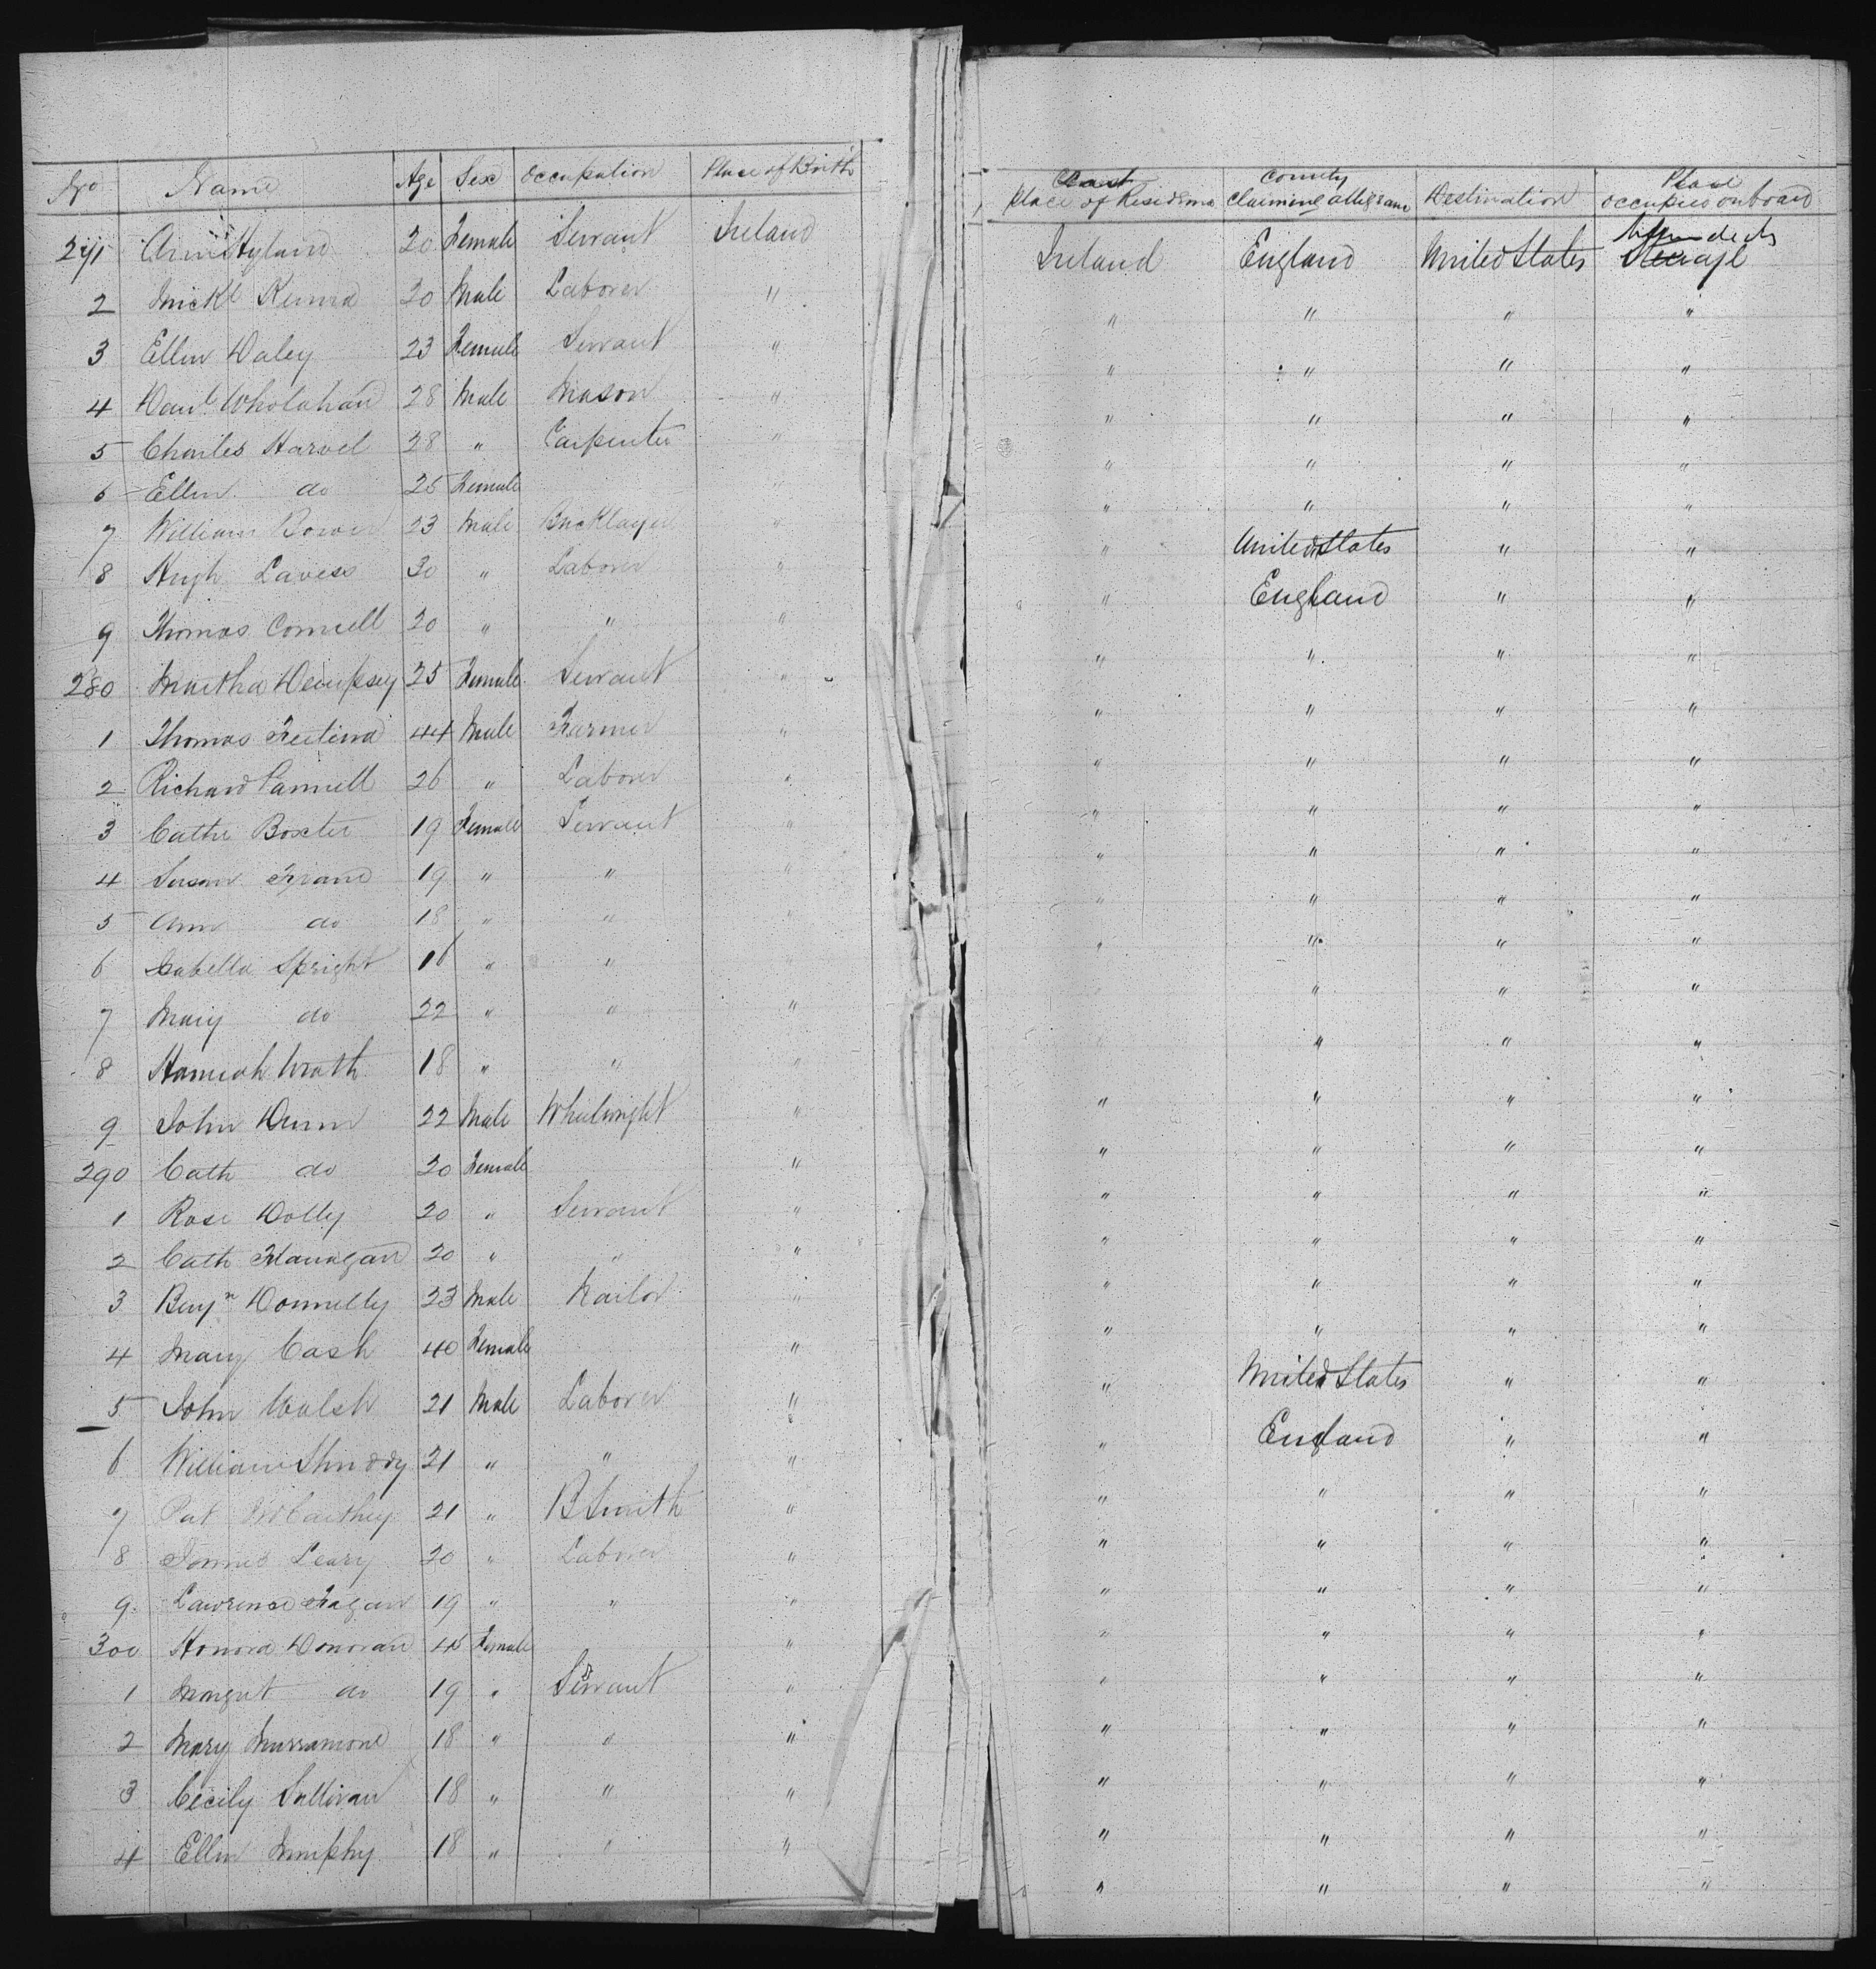 No Name Age Sex Occupation Place of Birth
271 Ann Hyland 20 Female Servant Ireland
2 Mickl 20 Male Laborer "
3 Ellen Daley 23 Female Servant "
4 Danl Wholahan 28 Male Mason "
5 Charles Harvel 28 " Carpenter "
6 Ellen do 26 Female "
7 William Bower 23 Male Bricklayer "
8 Hugh 30 " Laborer "
9 Thomas Connell 20 " " "
280 Martha Dempsey 25 Female Servant "
1 Thomas 44 Male Farmer "
2 Richard Pannell 26 " Laborer "
3 Cathe Boxter 19 Female Servant "
4 Susan 19 " " "
5 Ann do 18 " " "
6 Isabella Spright 16 " "
7 Mary do 22 " " "
8 Hannah Wrath 18 " " "
9 John Dunn 22 Male Wheelwright "
290 Cath do 20 Female "
1 Rose Dolly 20 " Servant "
2 Cath Flanagan 20 " " "
3 Benjn Donnelly 23 Male Nailor "
4 Mary Cash 40 Female "
5 John Walsh 21 Male Laborer "
6 William 21 " " "
7 Pat McCarthey 21 " B Smith "
8 James Leary 20 " Laborer "
9 Lawrence Fagan 19 " " "
300 Honora Donovan 45 Female "
1 Margret do 19 " Servant "
2 Mary Murramone 18 " " "
3 Cecily Sullivan 18 " " "
4 Ellen Murphy 18 " " "
Place of Residence County Claiming allegiance Destination Place occupied onboard
Ireland England United States Between decks
" " " "
" " " "
" " " "
" " " "
" " " "
" United States " "
" England " "
" " " "
" " " "
" " " "
" " " "
" " " "
" " " "
" " " "
" " "
" " "
" " " "
" " " "
" " " "
" " " "
" " " "
" " " "
" United States " "
" England " "
" " " "
" " " "
" " " "
" " " "
" " " "
" " " "
" " " "
" " " "
" " " "